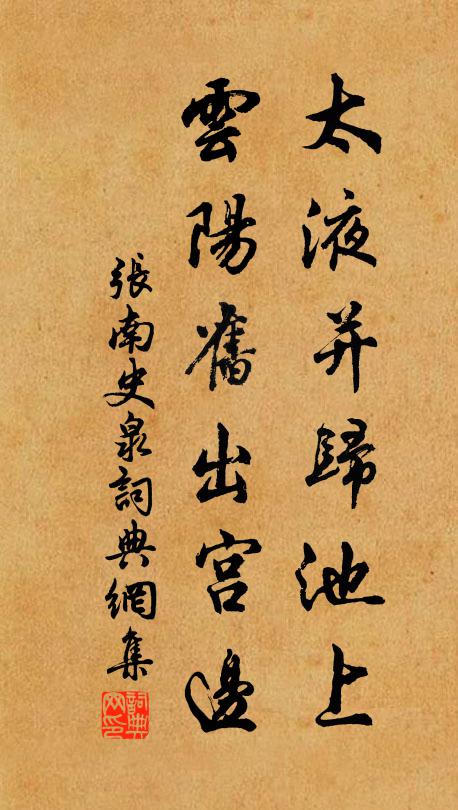 太液并歸池上
雲陽舊出宮邊
張南史泉詞典網集
詞典網印